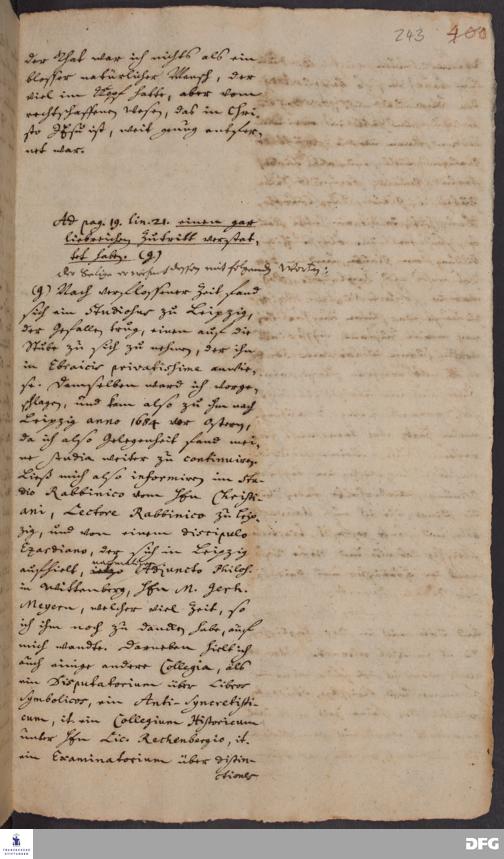 243 400
der That war ich nichts als ein
blosser natürlicher Mensch, der
viel im Kopf hatte, aber vom
rechtschaffenen Wesen, das in Chri-
sto JEsu ist, weit genug entfer-
net war.
Ad pag. 19. lin. 21. einen gar
liebreichen Zutritt verstat-
tet haben. (g)
der Selige erwehnet dessen mit folgenden Worten:
(g) Nach verflossener Zeit fand
sich ein Studiosus zu Leipzig,
der Gefallen trug, einen auf die
Stube zu sich zu nehmen, der ihn
in Ebraicis privatissime anwie-
se. Demselben ward ich vorge-
schlagen, und kam also zu ihm nach
Leipzig anno 1684 vor Ostern,
da ich also Gelegenheit fand mei-
ne studia weiter zu continuiren.
Ließ mich also informiren im Stu-
dio Rabbinico vom Hrn Christi-
ani, Lectore Rabbinico zu Leip-
zig, und von einem discipulo
Ezardiano, der sich in Leipzig
aufhielt, Adjuncto Philos.
in Wittenberg, Hrn M. Gerh.
Meyern, welcher viel Zeit, so
ich ihm noch zu dancken habe, auf
mich wandte. Darneben hielt ich
auch einige andere Collegia, als
ein Disputatorium über Libros
Symbolicos, ein Anti-Syncretisti-
cum, it. ein Collegium Historicum
unter Hrn Lic. Rechenbergio, it.
ein Examinatorium über distin-
ctiones
FRANCKESCHE
STIFTUNGEN
DFG